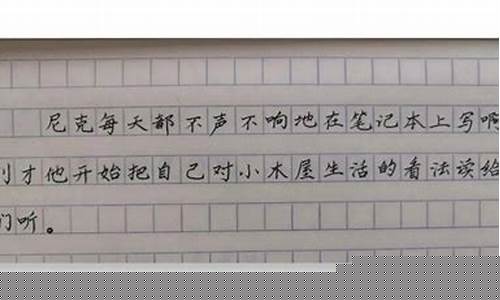 尼克每天都不声不响地在笔记本上写啊
才他开始把自己对小木屋生活的看法读给
们听。